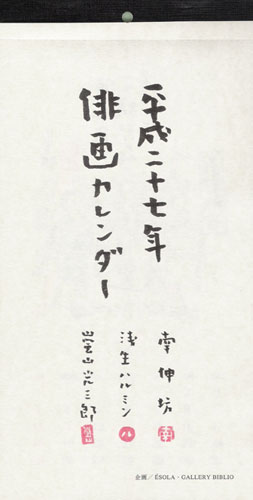 平成二十七年
俳画カレンダー
南伸坊
浅生ハルミン
嵐山光三郎
企画／ÉSOLA・GALLERY BIBLIO